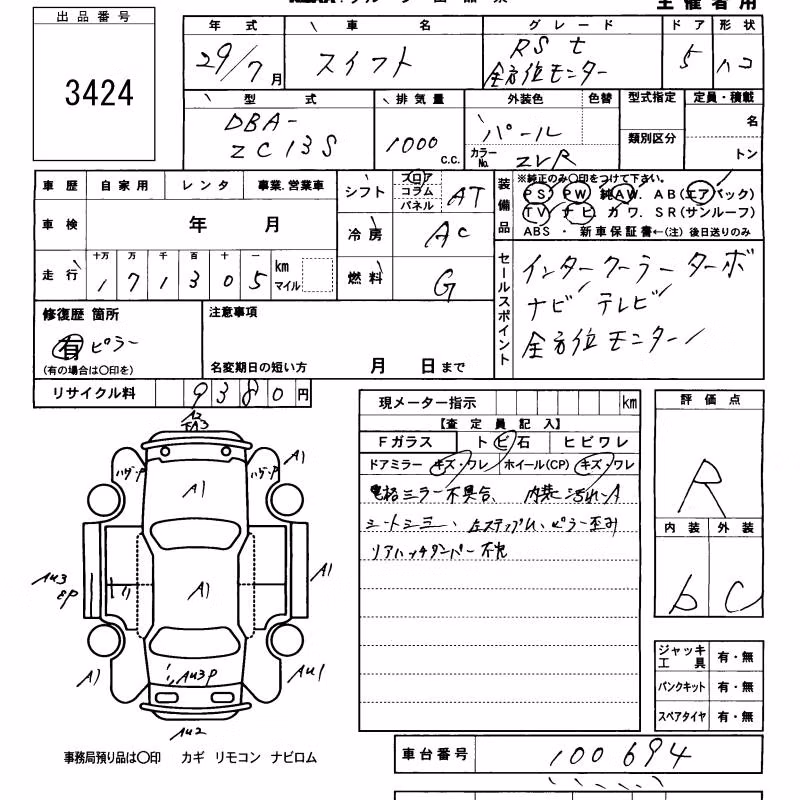 主催者用
出品番号
3424
年式 車名 グレード ドア 形状
29/7月 スイフト RSt 5 ハコ
全方位モニター
型式 排気量 外装色 色替 型式指定 定員・積載
DBA- 1000 c.c. パール 類別区分 名
ZC13S カラーNo. ZVR トン
車歴 自家用 レンタ 事業.営業車
車検 年 月
走行 十万 万 千 百 十 一
171305 km
マイル
シフト フロア コラム パネル AT
冷房 AC
燃料 G
装備品
※純正のみ○印をつけて下さい。
PS PW 純AW. AB(エアバック)
TV ナビ カワ. SR(サンルーフ)
ABS ・ 新車保証書←(注) 後日送りのみ
セールスポイント
インタークーラーターボ
ナビ テレビ
全方位モニター
修復歴 箇所
有 ピラー
(有の場合は○印を)
注意事項
名変期日の短い方 月 日まで
リサイクル料 9380円
現メーター指示 km
【査定員記入】
Fガラス トビ石 ヒビワレ
ドアミラー キズ・ワレ ホイール(CP) キズ・ワレ
電格ミラー不具合、内装汚れA
シートシミ、左ステップH、ピラー歪み
リアハッチダンパー不良
評価点
R
内装 外装
b C
ジャッキ工具 有・無
パンクキット 有・無
スペアタイヤ 有・無
A2
ハゲ・P ハゲ・P A1
A1
AU3 A1 A1
EP
AU3P
A1 AU1
AU2
事務局預り品は○印 カギ リモコン ナビロム
車台番号 100694